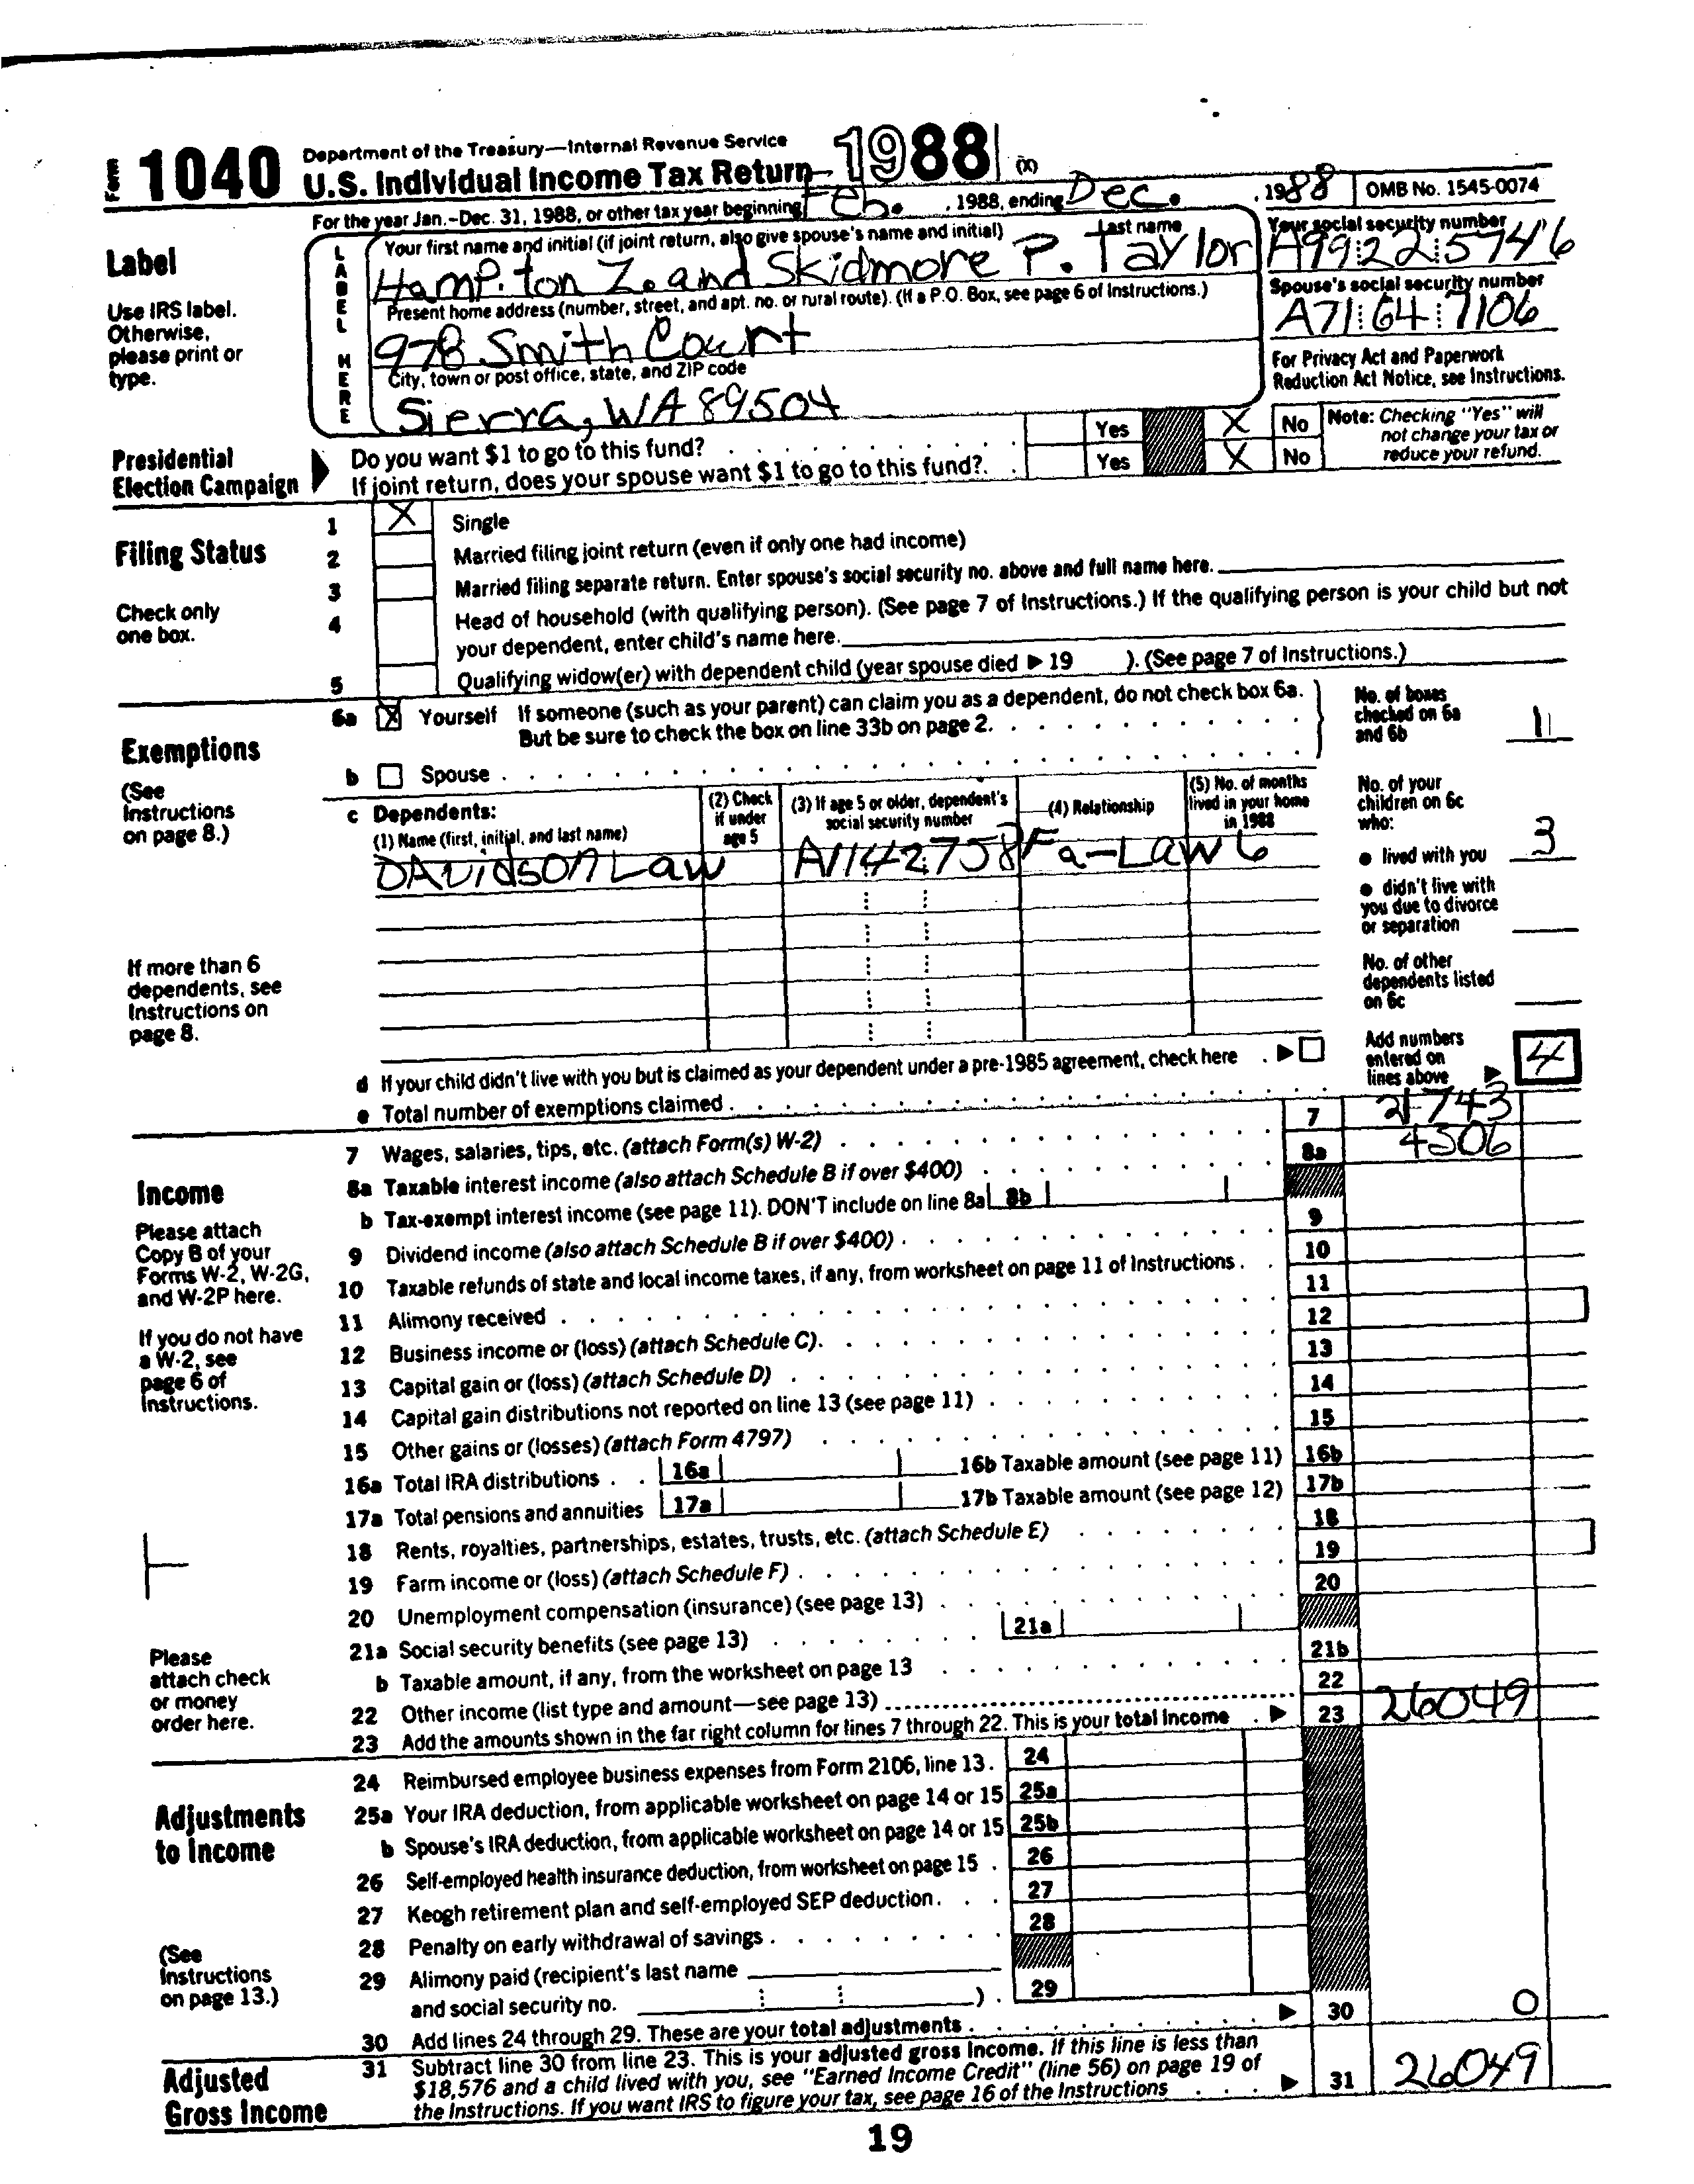 Form 1040 Department of the Treasury—Internal Revenue Service
U.S. Individual Income Tax Return 1988 (X)
For the year Jan.-Dec. 31, 1988, or other tax year beginning Feb. , 1988, ending Dec. , 1988 OMB No. 1545-0074
Label
Use IRS label. Otherwise, please print or type.
LABEL HERE
Your first name and initial (if joint return, also give spouse's name and initial) Last name
Hampton Z. and Skidmore P. Taylor
Your social security number
A99 22 5746
Present home address (number, street, and apt. no. or rural route). (If a P.O. Box, see page 6 of Instructions.)
978 Smith Court
Spouse's social security number
A71 64 7106
City, town or post office, state, and ZIP code
Sierra, WA 89504
For Privacy Act and Paperwork Reduction Act Notice, see Instructions.
Presidential Election Campaign
Do you want $1 to go to this fund? Yes X No
If joint return, does your spouse want $1 to go to this fund? Yes X No
Note: Checking "Yes" will not change your tax or reduce your refund.
Filing Status
Check only one box.
1 X Single
2 Married filing joint return (even if only one had income)
3 Married filing separate return. Enter spouse's social security no. above and full name here.
4 Head of household (with qualifying person). (See page 7 of Instructions.) If the qualifying person is your child but not
your dependent, enter child's name here.
5 Qualifying widow(er) with dependent child (year spouse died ▶ 19 ). (See page 7 of Instructions.)
Exemptions
(See Instructions on page 8.)
6a X Yourself If someone (such as your parent) can claim you as a dependent, do not check box 6a.
But be sure to check the box on line 33b on page 2.
b Spouse
No. of boxes checked on 6a and 6b 1
c Dependents:
(1) Name (first, initial, and last name)
(2) Check if under age 5
(3) If age 5 or older, dependent's social security number
(4) Relationship
(5) No. of months lived in your home in 1988
Davidson Law A11 42 758 Fa-Law 6
No. of your children on 6c who:
● lived with you 3
● didn't live with you due to divorce or separation
No. of other dependents listed on 6c
If more than 6 dependents, see Instructions on page 8.
d If your child didn't live with you but is claimed as your dependent under a pre-1985 agreement, check here ▶
e Total number of exemptions claimed
Add numbers entered on lines above ▶ 4
Income
Please attach Copy B of your Forms W-2, W-2G, and W-2P here.
If you do not have a W-2, see page 6 of Instructions.
Please attach check or money order here.
7 Wages, salaries, tips, etc. (attach Form(s) W-2) 7 21743
8a Taxable interest income (also attach Schedule B if over $400) 8a 4306
b Tax-exempt interest income (see page 11). DON'T include on line 8a 8b
9 Dividend income (also attach Schedule B if over $400) 9
10 Taxable refunds of state and local income taxes, if any, from worksheet on page 11 of Instructions 10
11 Alimony received 11
12 Business income or (loss) (attach Schedule C) 12
13 Capital gain or (loss) (attach Schedule D) 13
14 Capital gain distributions not reported on line 13 (see page 11) 14
15 Other gains or (losses) (attach Form 4797) 15
16a Total IRA distributions 16a 16b Taxable amount (see page 11) 16b
17a Total pensions and annuities 17a 17b Taxable amount (see page 12) 17b
18 Rents, royalties, partnerships, estates, trusts, etc. (attach Schedule E) 18
19 Farm income or (loss) (attach Schedule F) 19
20 Unemployment compensation (insurance) (see page 13) 20
21a Social security benefits (see page 13) 21a
b Taxable amount, if any, from the worksheet on page 13 21b
22 Other income (list type and amount—see page 13) 22
23 Add the amounts shown in the far right column for lines 7 through 22. This is your total income ▶ 23 26049
Adjustments to Income
(See Instructions on page 13.)
24 Reimbursed employee business expenses from Form 2106, line 13. 24
25a Your IRA deduction, from applicable worksheet on page 14 or 15 25a
b Spouse's IRA deduction, from applicable worksheet on page 14 or 15 25b
26 Self-employed health insurance deduction, from worksheet on page 15 26
27 Keogh retirement plan and self-employed SEP deduction 27
28 Penalty on early withdrawal of savings 28
29 Alimony paid (recipient's last name
and social security no. ) 29
30 Add lines 24 through 29. These are your total adjustments ▶ 30 0
Adjusted Gross Income
31 Subtract line 30 from line 23. This is your adjusted gross income. If this line is less than
$18,576 and a child lived with you, see "Earned Income Credit" (line 56) on page 19 of
the Instructions. If you want IRS to figure your tax, see page 16 of the Instructions ▶ 31 26049
19